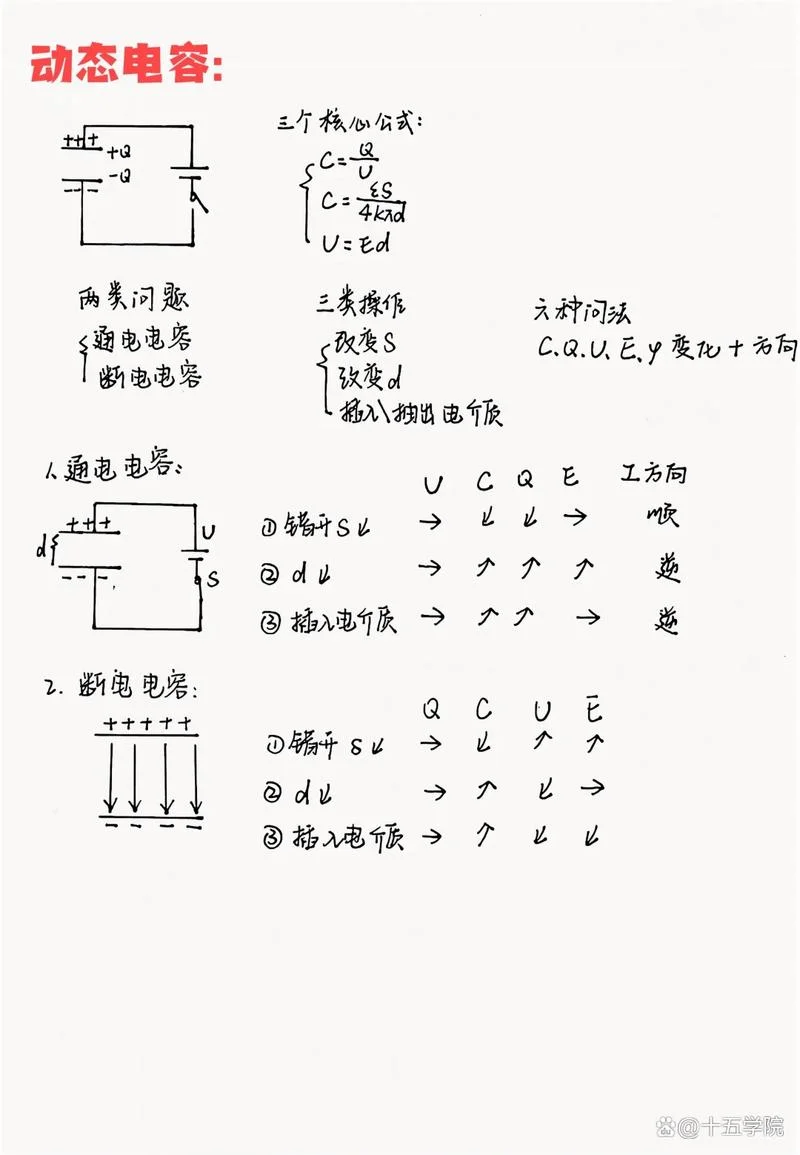 动态电容:
+++
+Q
-Q
---
三个核心公式:
C=Q/U
C=εS/4kπd
U=Ed
两类问题
通电电容
断电电容
三类操作
改变S
改变d
插入\抽出电介质
六种问法
C.Q.U、E、φ变化+方向
1、通电电容:
+++
d
U
S
---
U C Q E I方向
①错开S↓ → ↓ ↓ → 顺
②d↓ → ↑ ↑ ↑ 逆
③插入电介质 → ↑ ↑ → 逆
2. 断电电容:
+++++
----
Q C U E
①错开S↓ → ↓ ↑ ↑
②d↓ → ↑ ↓ →
③插入电介质 → ↑ ↓ ↓
@十五学院